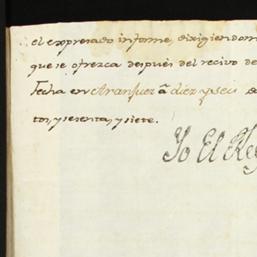 el expresado informe, dirigiendom
que se ofrezca después del recivo de
Fecha en Aranjuez à diez y seis
tos, y sesenta, y siete.
Yo El Rey